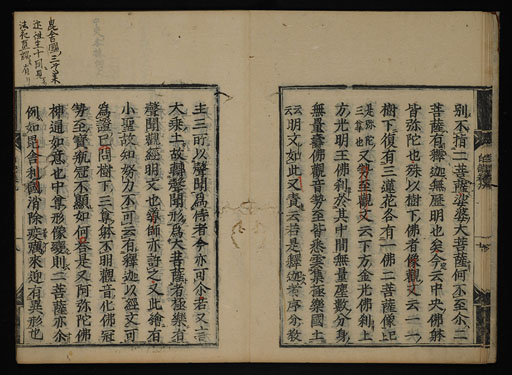 別不指二菩薩娑婆大菩薩何不至尒二
菩薩有釋迦無歷明也矣今云中央佛躰
皆弥陀也殊以樹下佛者像觀文云一一
樹下復有三蓮花各有一佛二菩薩像已
是弥陀三尊也又勢至觀文云下方金光佛刹上
方光明王佛刹於其中間無量塵數分身
無量壽佛觀音勢至皆悉雲集極樂國土
云云明文如此又責云若是釋迦者序分教
主三所以聲聞爲侍者今亦可尒若又言
大乗土故轉聲聞形爲大菩薩者極樂有
聲聞觀經明文也導師亦許之又此繪有
小聖故知努力不可云有釋迦以經文可
爲證已問樹下三尊躰不明觀音化佛冠
勢至寶瓶冠不顯如何答是又阿弥陀佛
神通如意也中尊形像既則二菩薩亦尒
例如毘舎利國消除疫癘來迎有異形也
毘舎國